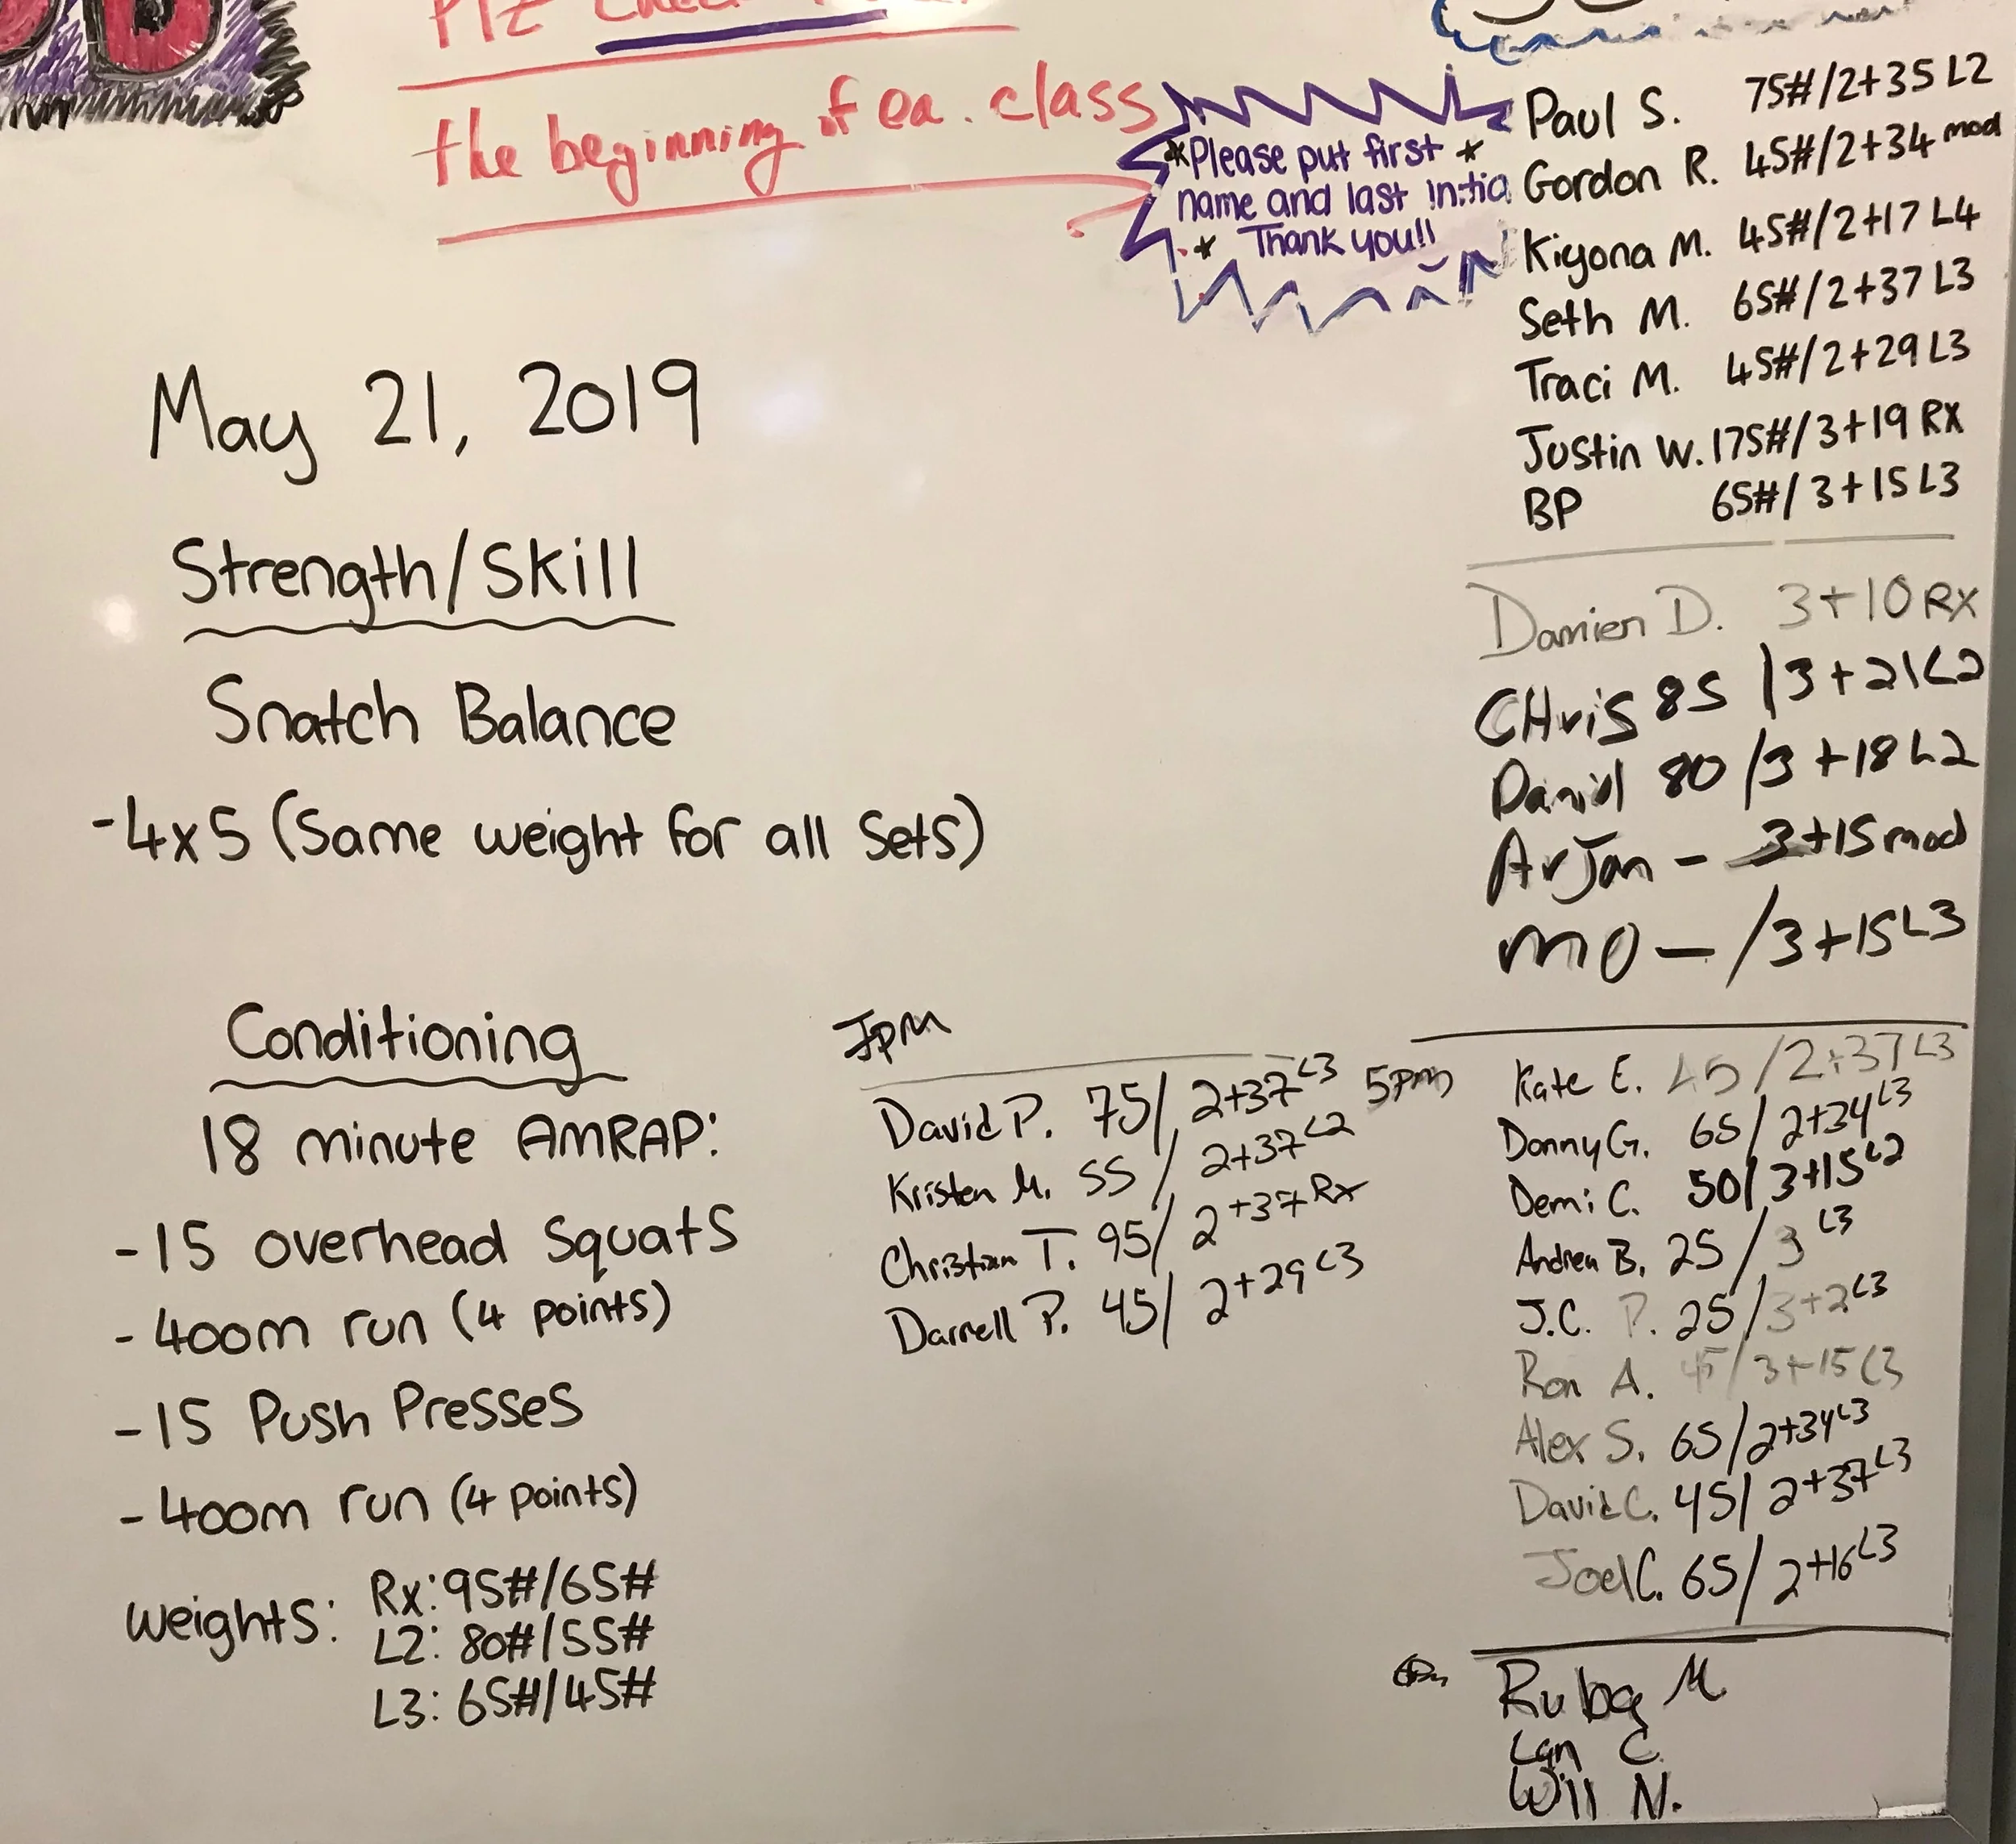 the beginning of ea. class
*Please put first *
name and last initia
* Thank you!!
May 21, 2019
Strength/Skill
Snatch Balance
-4x5 (Same weight for all Sets)
Conditioning
18 minute AMRAP:
-15 overhead Squats
-400m run (4 points)
-15 Push Presses
-400m run (4 points)
weights: Rx: 95#/65#
L2: 80#/55#
L3: 65#/45#
David P. 75/ 2+37 L3
Kristen M. 55 / 2+37 L2
Christian T. 95/ 2+37 Rx
Darrell P. 45/ 2+29 L3
Paul S. 75#/2+35 L2
Gordon R. 45#/2+34 mod
Kiyona M. 45#/2+17 L4
Seth M. 65#/2+37 L3
Traci M. 45#/2+29 L3
Justin W. 175#/3+19 RX
BP 65#/3+15 L3
Damien D. 3+10 RX
CHris 85 /3+21 L2
Daniel 80 /3+18 L2
ArJan - 3+15 mod
MO - /3+15 L3
5pm
Kate E. 45 /2+37 L3
Donny G. 65/2+34 L3
Demi C. 50/3+15 L2
Andrea B. 25/3 L3
J.C. P. 25/3+2 L3
Ron A. 45/3+15 L3
Alex S. 65/2+34 L3
David C. 45/2+37 L3
Joel C. 65/2+16 L3
Ruba M
Ian C.
Will N.